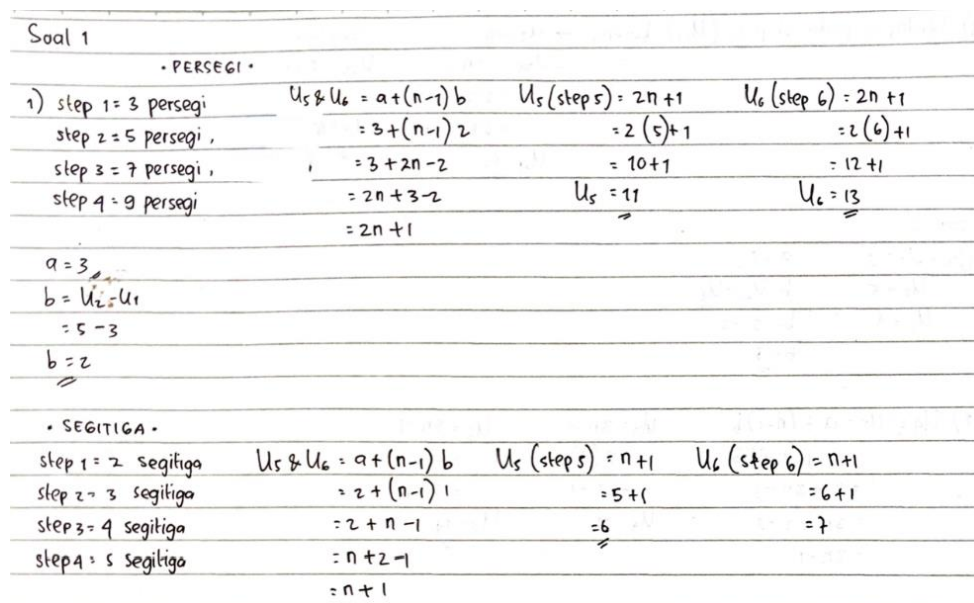 Soal 1
• PERSEGI •
1) step 1 = 3 persegi
step 2 = 5 persegi,
step 3 = 7 persegi,
step 4 = 9 persegi
a = 3
b = U2 - U1
= 5 - 3
b = 2
U5 & U6 = a + (n-1) b
= 3 + (n-1) 2
= 3 + 2n - 2
= 2n + 3 - 2
= 2n + 1
U5 (step 5) = 2n + 1
= 2 (5) + 1
= 10 + 1
U5 = 11
U6 (step 6) = 2n + 1
= 2 (6) + 1
= 12 + 1
U6 = 13
• SEGITIGA •
step 1 = 2 segitiga
step 2 = 3 segitiga
step 3 = 4 segitiga
step 4 = 5 segitiga
U5 & U6 = a + (n-1) b
= 2 + (n-1) 1
= 2 + n - 1
= n + 2 - 1
= n + 1
U5 (step 5) = n + 1
= 5 + 1
= 6
U6 (step 6) = n + 1
= 6 + 1
= 7